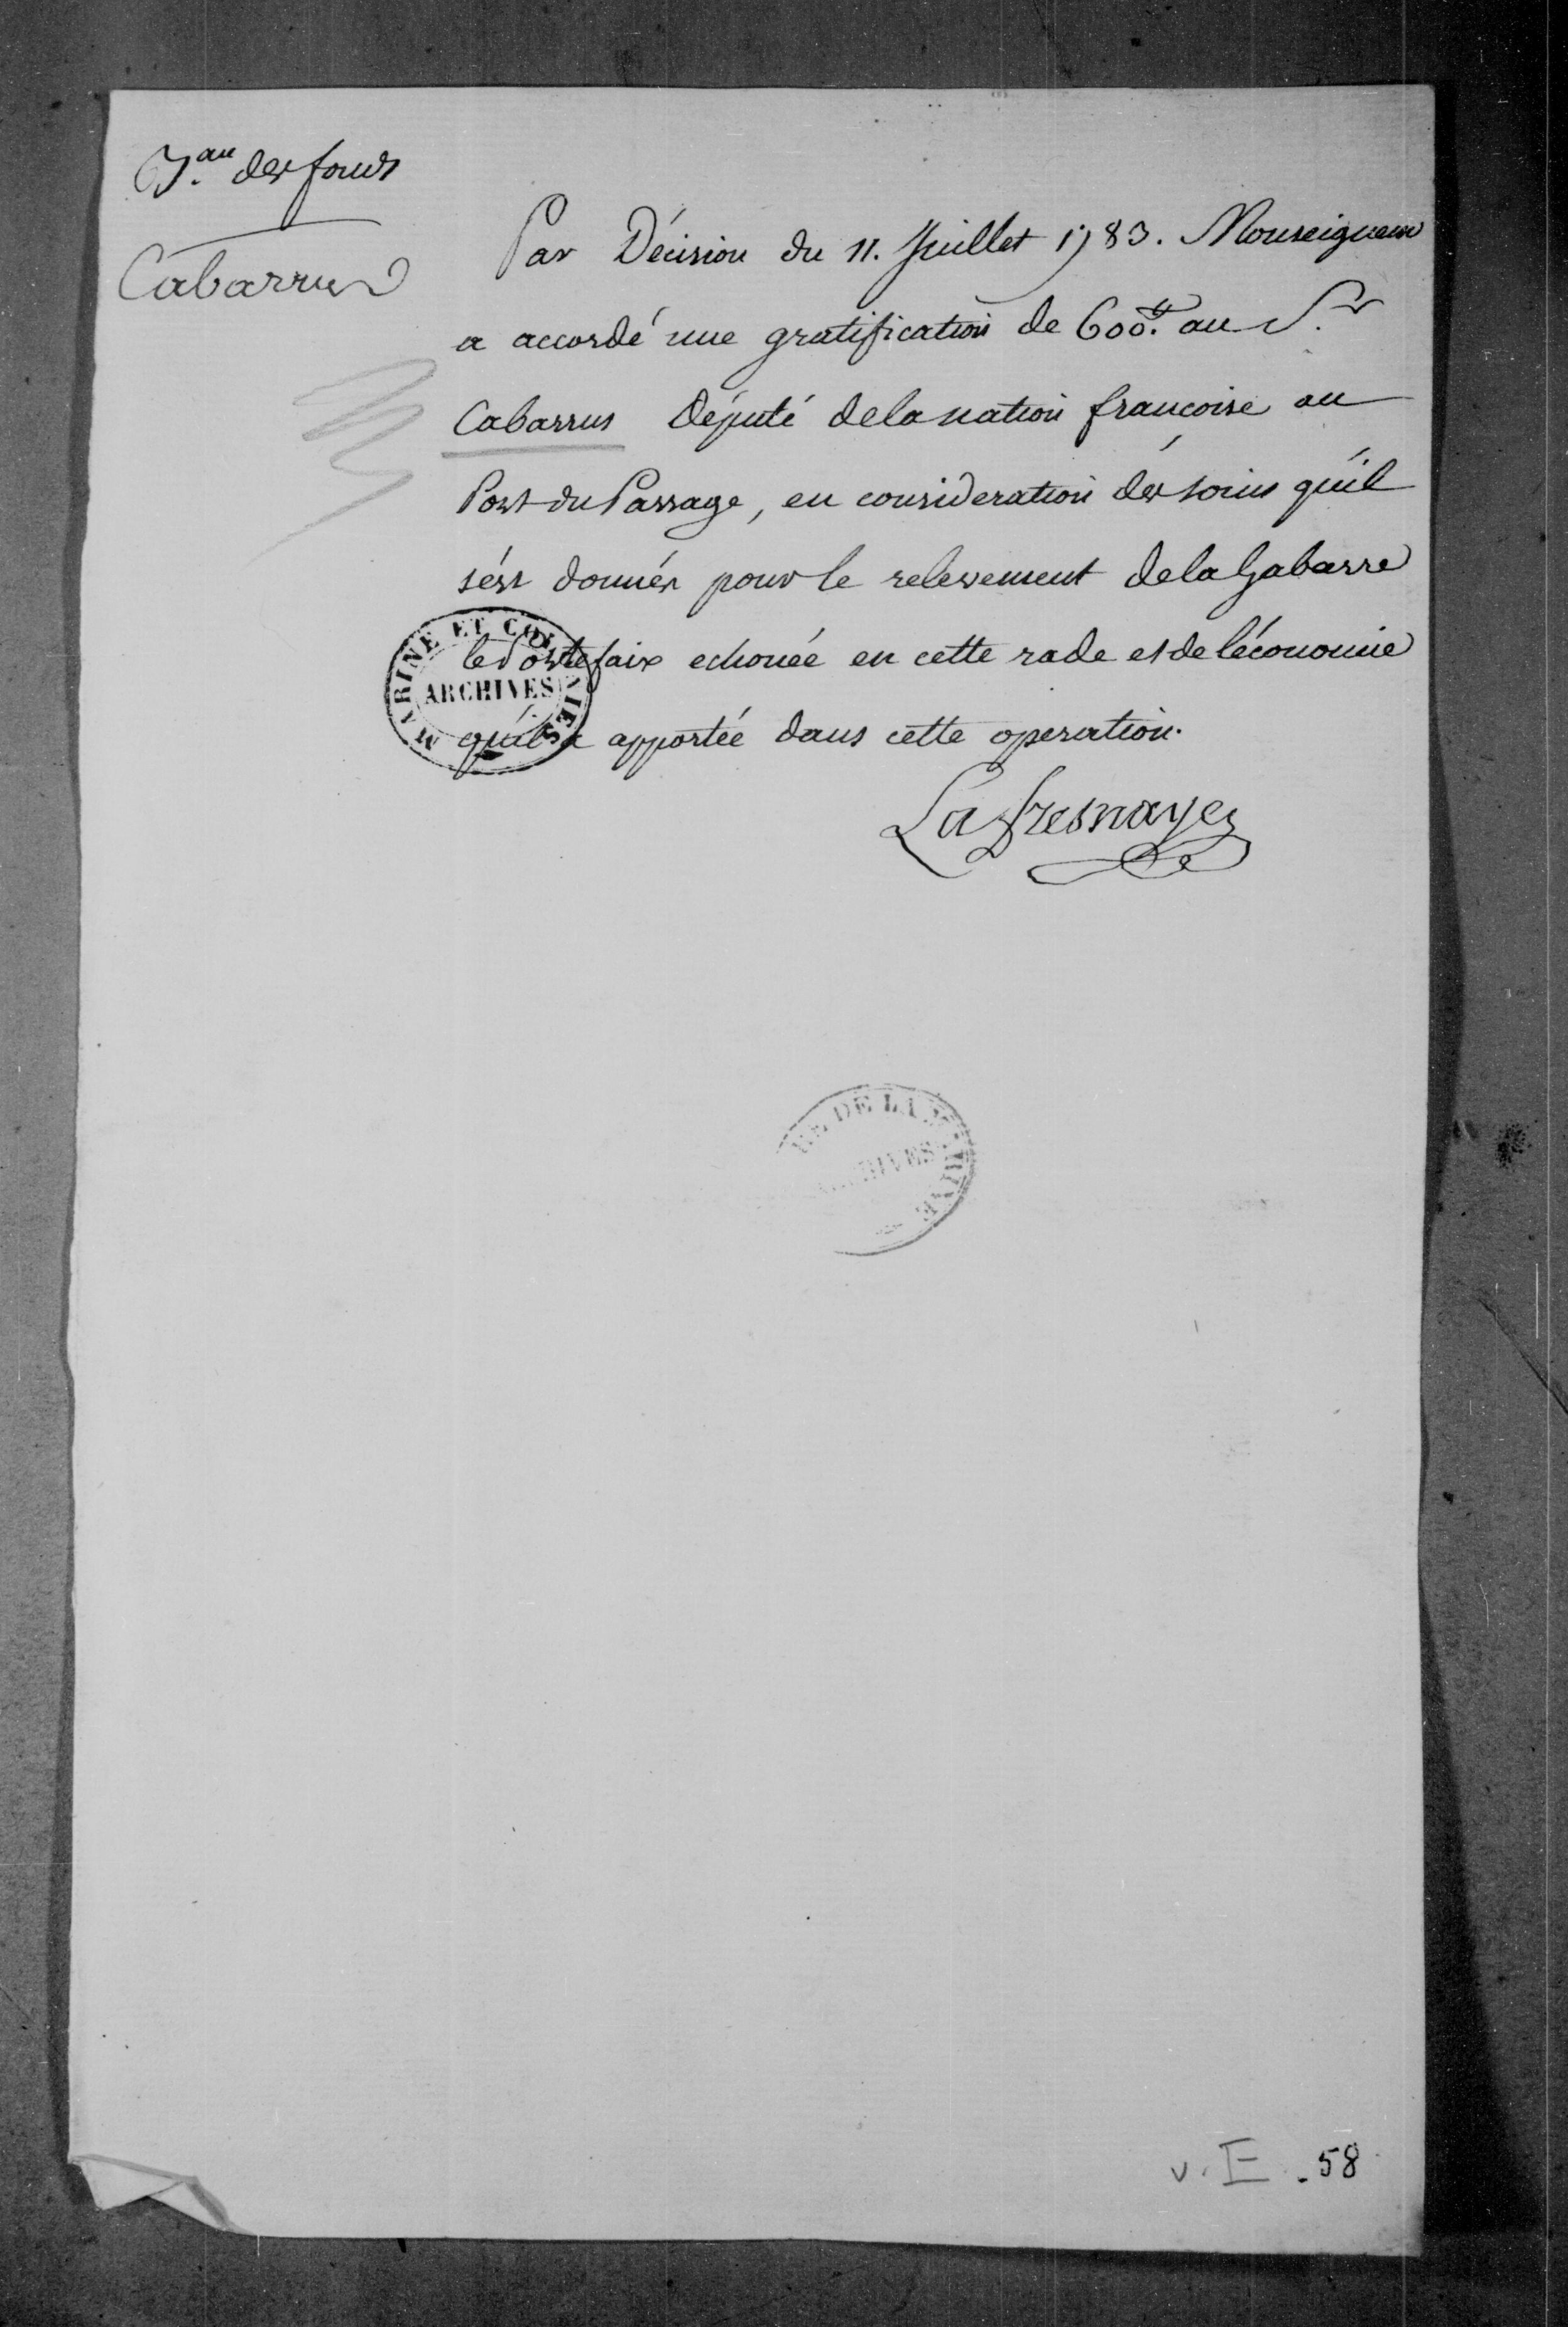 B.au des fonds
Cabarrus
Par Décision du 11. Juillet 1783. Monseigneur
a accordé une gratification de 600.tt au S.r
Cabarrus Député de la nation françoise au
Port du Passage, en consideration des soins qu'il
s'est donnés pour le relevement de la Gabarre
le Portefaix echouée en cette rade et de l'économie
qu'il a apportée dans cette operation.
La fresnaye
MARINE ET COLONIES
ARCHIVES
DE LA MARINE
ARCHIVES
v. E. 58